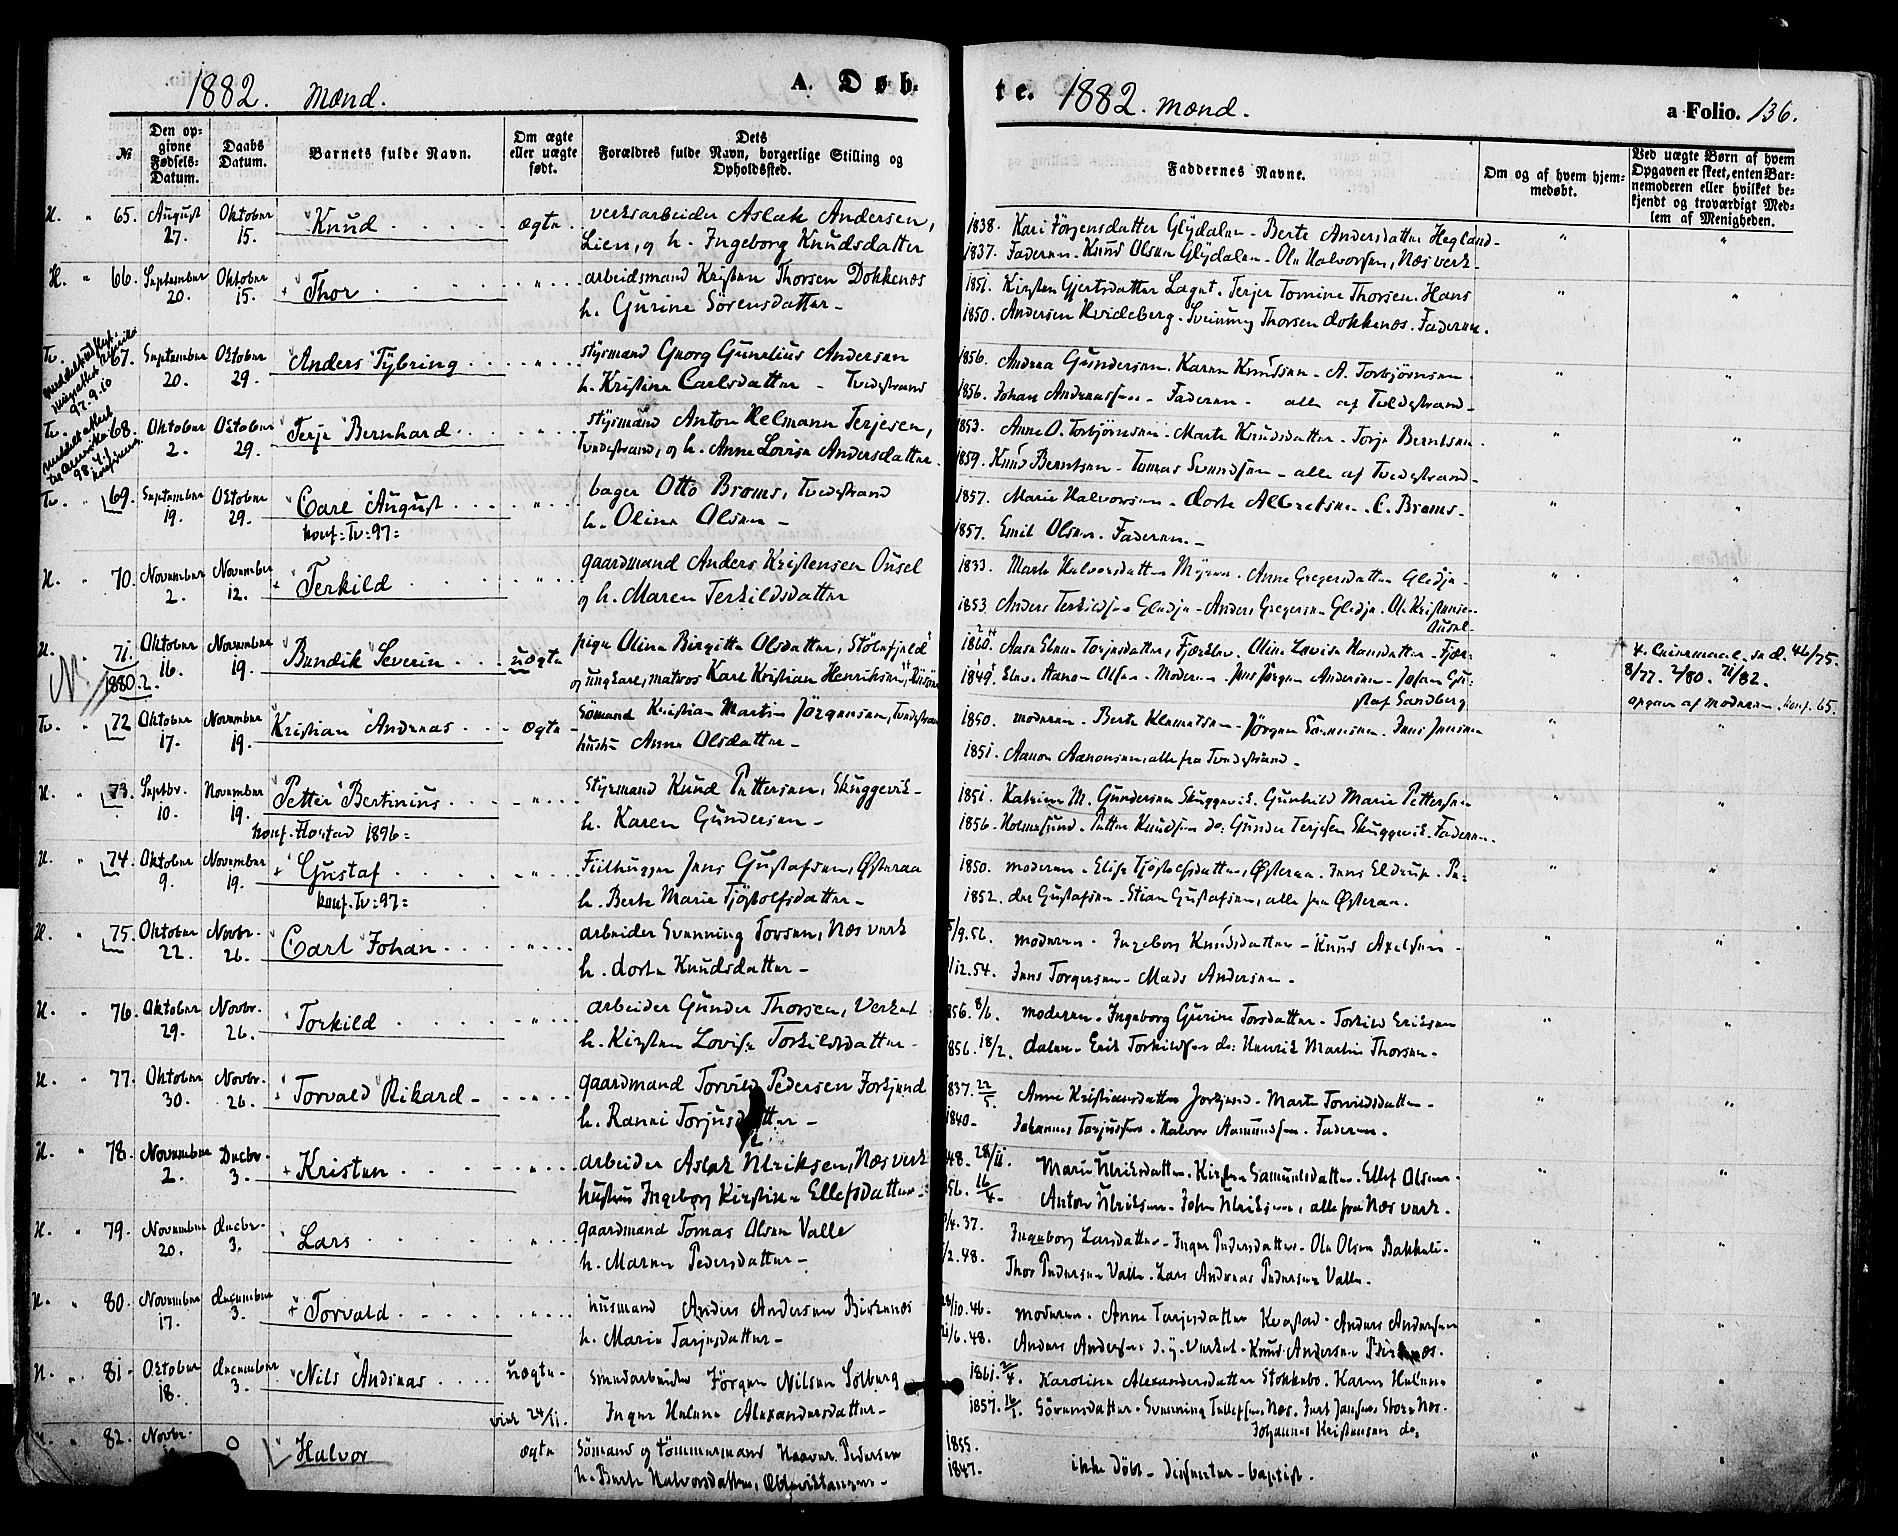 1882. Mænd. A. Døb-
№
Den op-
givne
Fødsels-
Datum.
Daabs
Datum.
Barnets fulde Navn.
Om ægte
eller uægte
født.
Dets
Forældres fulde Navn, borgerlige Stilling og
Opholdssted.
te. 1882. Mænd. a Folio. 136.
Faddernes Navne.
Om og af hvem hjem-
medøbt.
Ved uægte Børn af hvem
Opgaven er skeet, enten Bar-
nemoderen eller hvilket be-
kjendt og troværdigt Med-
lem af Menigheden.
H. " 65. August 27. Oktober 15. Knud ægte. verksarbeider Aslak Andersen,
Lien, og h. Ingeborg Knudsdatter
1838. Kari Jörgensdatter Glydalen - Berte Andersdatter Hegland -
1837. Faderen - Knud Olsen Glydalen - Ole Halvorsen, Næs verk -
H. " 66. September 20. Oktober 15. Thor " arbeidsmand Kristen Thorsen Dokkenæs
h. Gurine Sörensdatter -
1851. Kirsten Gjertsdatter Laget. Terjer Tomine Thorsen. Hans
1850. Andersen Hvideberg. Sveinung Thorsen Dokkenæs. Faderen.
Tv. 67. September 20. Oktober 29. Anders Tybring " styrmand Georg Gunelius Andersen
h. Kristine Carlsdatter - Tvedestrand
1856. Andrea Gundersen. Karen Knudsen - A. Torbjörnsen
1856. Johan Andreassen - Faderen - alle af Tvedestrand -
Tv. 68. Oktober 2. Oktober 29. Terje Bernhard " styrmand Anton Helmann Terjesen,
Tvedestrand, og h. Anne Lovise Andersdatter.
1853. Anne O. Torbjörnsen - Marte Knudsdatter - Terje Berntsen.
1859. Knud Berntsen - Tomas Svendsen - alle af Tvedestrand -
Tv. " 69. September 19. Oktober 29. Carl August " bager Otto Broms, Tvedestrand
konf: Tv: 97 = h. Oline Olsen -
1857. Marie Halvorsen - Dorte Albretsen. C. Broms -
1857. Emil Olsen. Faderen. -
H. " 70. November 2. November 12. Terkild " gaardmand Anders Kristensen Ousel
og h. Maren Terkildsdatter
1833. Marte Halvorsdatter Myren. Anne Gregersdatter Gledje -
1853. Anders Terkildsen Gledje - Anders Gregersen Gledje. Ole Kristensen
Ousel -
H. " 71. Oktober 16. November 19. Bendik Severin uægte pige Oline Birgitte Olsdatter, Stölefjeld
1880. 2. og ungkarl, matros Karl Kristian Henriksen,
1860. Aase Elene Torjesdatter, Fjærbu. Oline Lovise Hansdatter - Fjær-
1849. Elen. Aanon Olsen - Moderen - Jens Jörgen Andersen - Johan Gu-
staf Sandberg
4. Leiermaal. se d. 46/75.
8/77. 2/80. 71/82.
opgave af moderen. konf. 65.
Tv. " 72 Oktober 17. November 19. Kristian Andreas ægte - Sömand Kristian Martin Jörgensen, Tvedestrand
hustru Anne Olsdatter -
1850. moderen - Berte Klemetsen - Jörgen Sörensen - Jens Jensen
1851. Aanon Aanonsen, alle fra Tvedestrand -
H. " 73. Septbr. 10. November 19. Petter Bertinius " Styrmand Knud Pettersen, Skuggevik -
konf. Flostad 1896 = h. Karen Gundersen -
1851. Katrine M. Gundersen Skuggevik. Gunhild Marie Pettersen
1856. Holmesund. Petter Knudsen do: Gunder Terjesen Skuggevik. Faderen.
H. " 74. Oktober 9. November 19. Gustaf " Filhugger Jens Gustafsen, Österaa
konf. Tv: 97 = h. Berte Marie Tjöstolfsdatter -
1850. moderen - Elise Tjöstolfsdatter, Österaa. Jens Eldrup. Pe-
1852. der Gustafsen - Stian Gustafsen, alle fra Österaa.
H. " 75. Oktober 22. Novbr. 26. Carl Johan " arbeider Svenning Torsen, Næs verk
h. Dorte Knudsdatter -
5/9. 56. moderen. Ingeborg Knudsdatter - Knud Axelsen -
1/12. 54. Jens Torgersen - Mads Andersen -
H. " 76. Oktober 29. Novbr. 26. Torkild " arbeider Gunder Thorsen, Verket
h. Kirsten Lovise Torkildsdatter -
856. 8/6. moderen. Ingeborg Gurine Torsdatter - Torkild Eriksen
856. 18/2. Dalen - Erik Torkildsen do: Henrik Martin Thorsen.
H. " 77. Oktober 30. Novbr. 26. Torvald Rikard - " gaardmand Torvild Pedersen Forkjend
h. Ranni Torjusdatter -
1837. 22/5. Anne Kristiansdatter Forkjend - Marte Torvildsdatter -
1840 - Johannes Torjussen. Halvor Aamundsen. Faderen.
H. " 78. November 2. Decbr. 3. Kristen " arbeider Aslak Ulriksen, Næs verk
hustru Ingeborg Kirstine Ellefsdatter -
48. 28/11. Marie Ulriksdatter. Kirsten Samuelsdatter. Ellef Olsen.
56. 16/4 - Anton Ulriksen - John Ulriksen, alle fra Næs verk.
H. " 79. November 20. Decbr. 3. Lars " gaardmand Tomas Olsen Valle
h. Maren Pedersdatter -
/4. 37. Ingeborg Larsdatter - Inger Pedersdatter - Ole Olsen Bakkeli -
/2. 48. Thor Pedersen Valle. Lars Andreas Pedersen Valle.
H. " 80. November 17. December 3. Torvald " husmand Anders Andersen Birkenæs
h. Marie Tarjesdatter -
28/10. 46. moderen. Anne Tarjesdatter Kvastad. Anders Andersen
/6. 48. Anders Andersen d. y. Verket - Knud Andersen Birkenæs.
H. " 81. Oktober 18. December 3. Nils Andreas uægte - Smedarbeider Jörgen Nilsen Solberg
24/11. Inger Helene Alexandersdatter -
1861. 2/4. Karoline Alexandersdatter Stokkebo. Karen Helene
1857. 16/1. Sörensdatter. Svenning Tellefsen Næs. Jens Jensen Store Næs.
Johannes Kristensen do:
H. " 82. Novbr. 0 Halvor ægte Sömand og tömmermand Haaver Pedersen
h. Berte Halvorsdatter,
1855. ikke döbt - disenter - baptist.
1847.